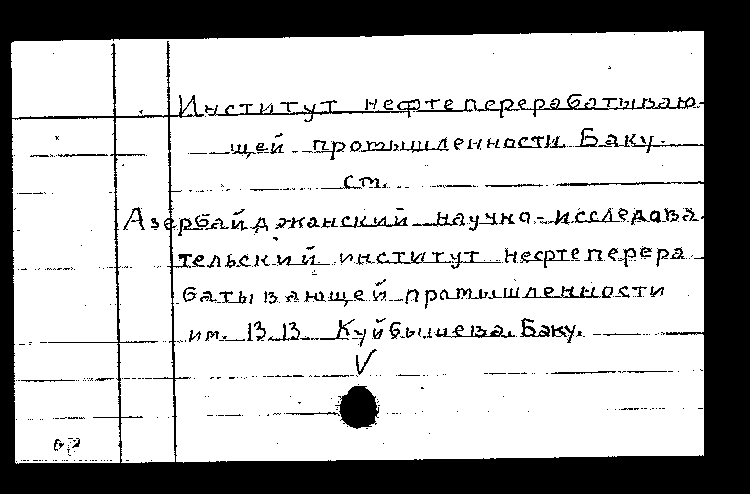 Институт нефтеперерабатываю-
щей промышленности. Баку.
см.
Азербайджанский научно-исследова-
тельский институт нефтеперера
батывающей промышленности
им. В.В. Куйбышева. Баку.